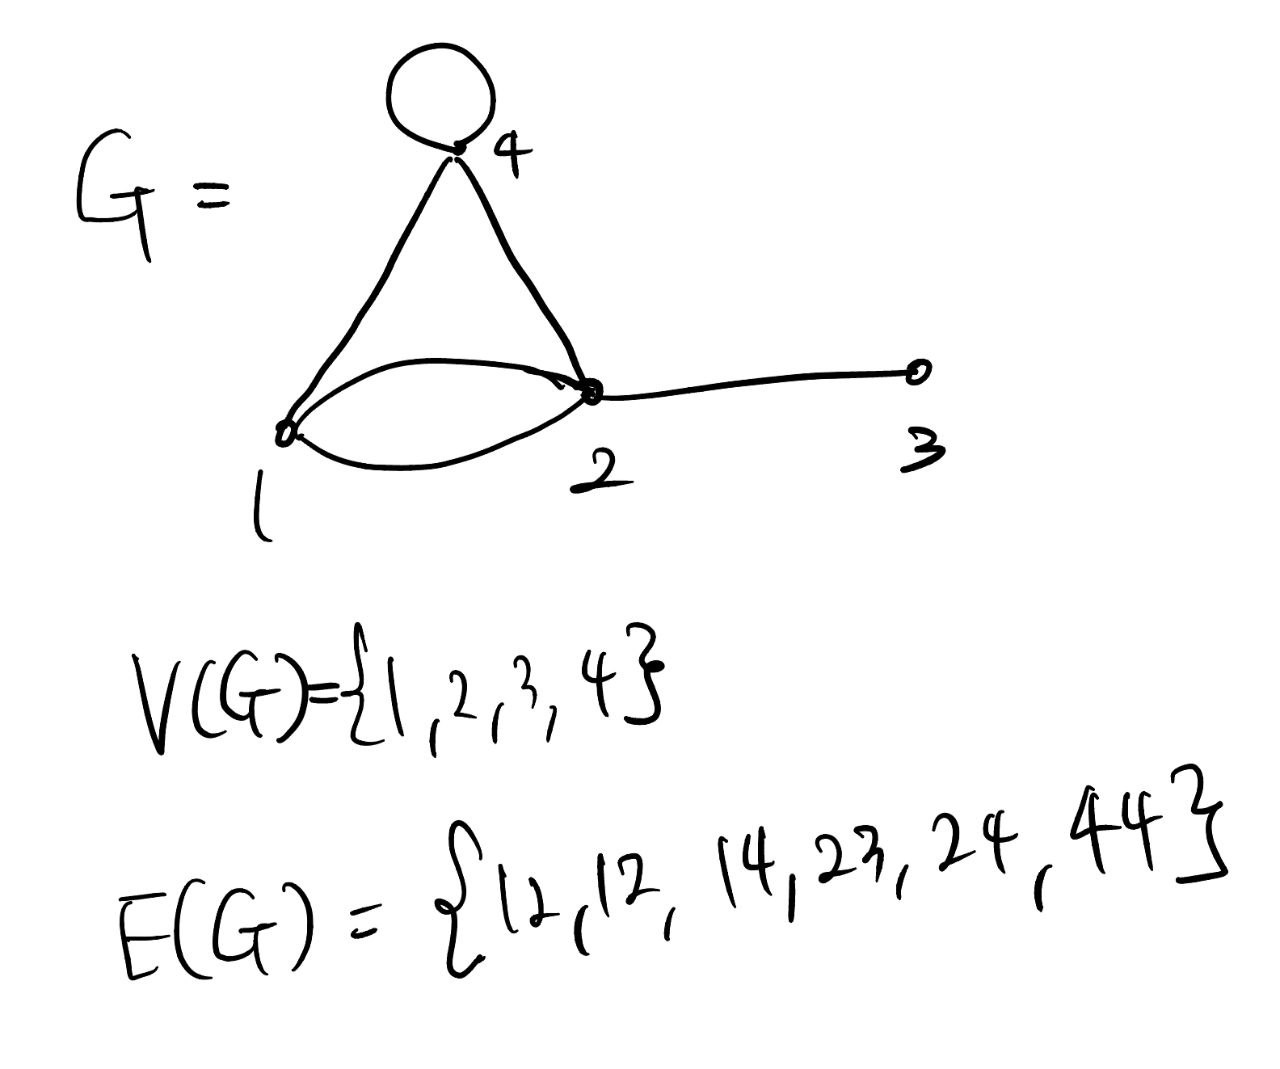 G =
4
1
2
3
V(G)={1,2,3,4}
E(G) = {12,12,14,23,24,44}